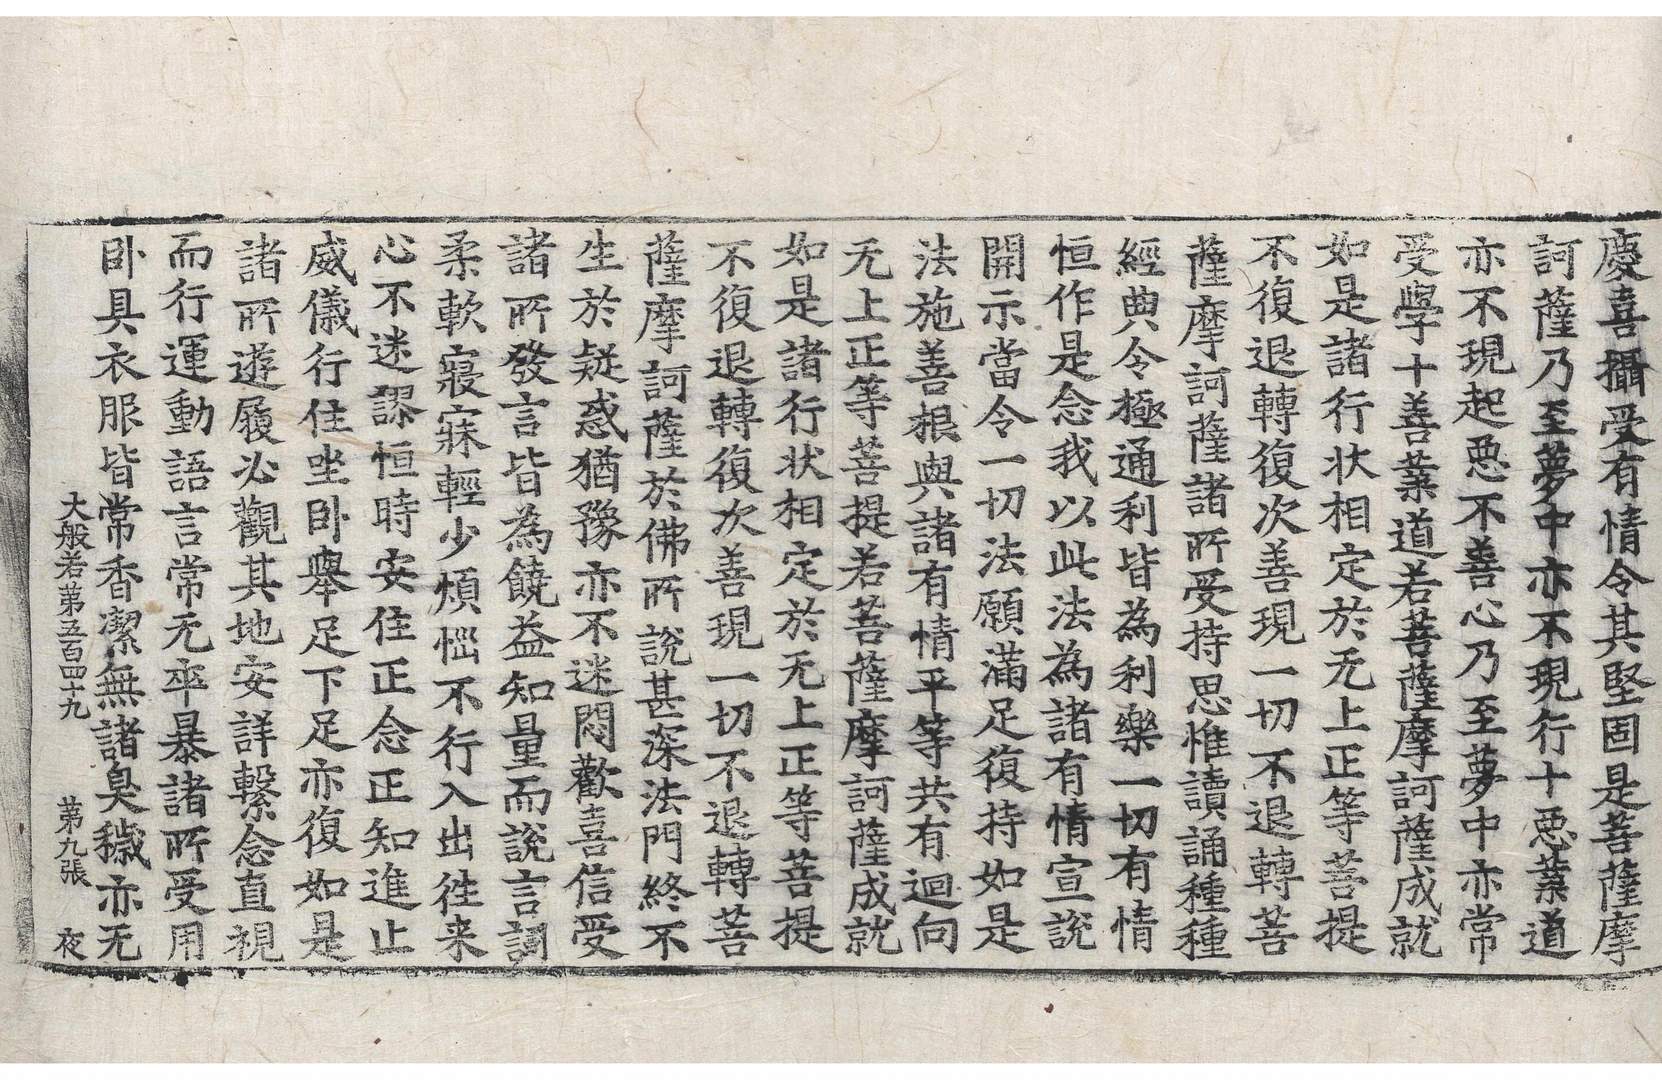 慶喜攝受有情令其堅固是菩薩摩
訶薩乃至夢中亦不現行十惡業道
亦不現起惡不善心乃至夢中亦常
受學十善業道若菩薩摩訶薩成就
如是諸行狀相定於无上正等菩提
不復退轉復次善現一切不退轉菩
薩摩訶薩諸所受持思惟讀誦種種
經典令極通利皆為利樂一切有情
恒作是念我以此法為諸有情宣說
開示當令一切法願滿足復持如是
法施善根與諸有情平等共有迴向
无上正等菩提若菩薩摩訶薩成就
如是諸行狀相定於无上正等菩提
不復退轉復次善現一切不退轉菩
薩摩訶薩於佛所說甚深法門終不
生於疑惑猶豫亦不迷悶歡喜信受
諸所發言皆為饒益知量而說言詞
柔軟寢寐輕少煩惱不行入出往来
心不迷謬恒時安住正念正知進止
威儀行住坐卧舉足下足亦復如是
諸所遊履必觀其地安詳繫念直視
而行運動語言常无卒暴諸所受用
卧具衣服皆常香潔無諸臭穢亦无
大般若第五百四十九 第九張 夜